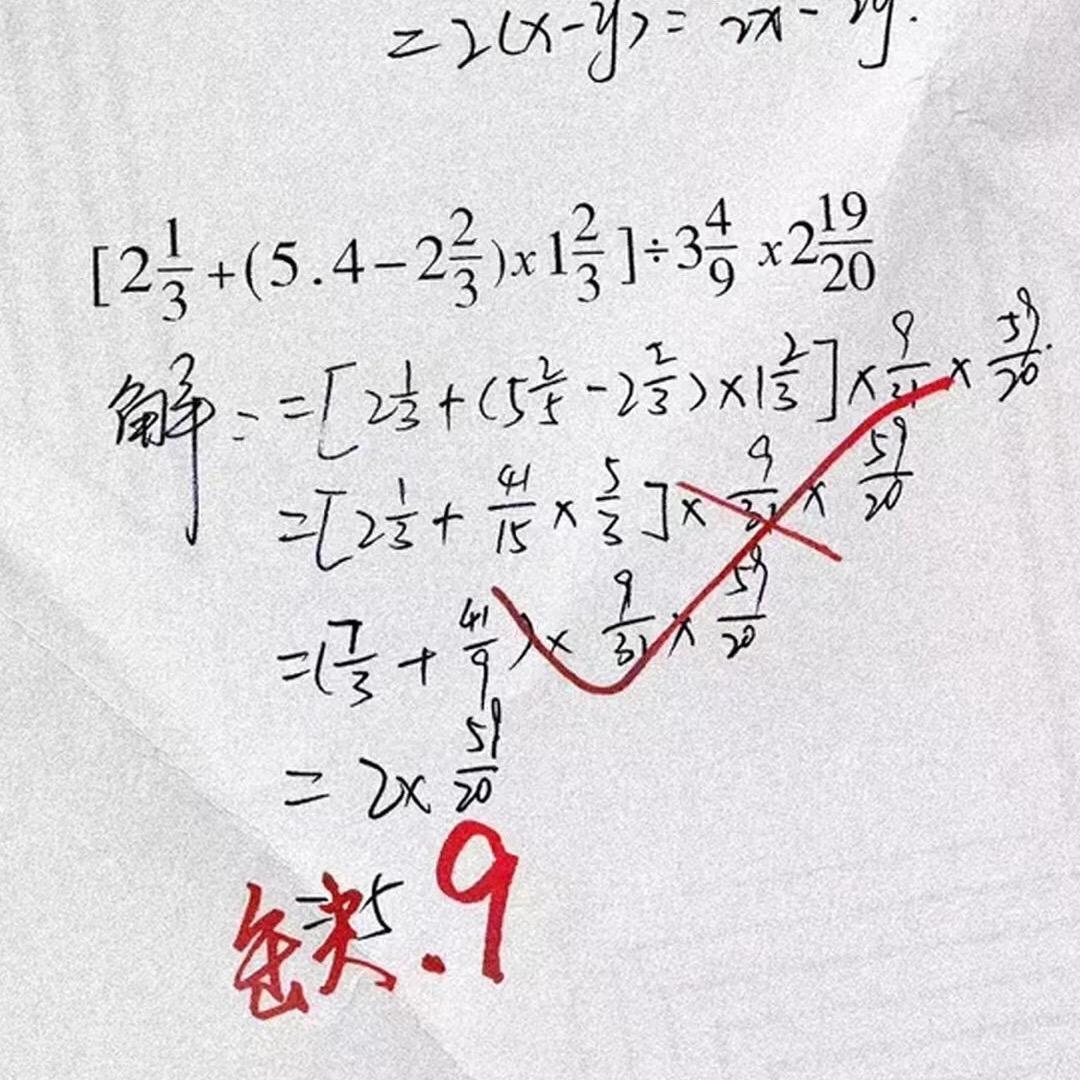 =2(x-y)=2x-2y.
[2 1/3+(5.4-2 2/3)x1 2/3]÷3 4/9 x2 19/20
解:=[2 1/3+(5 2/5-2 2/3)×1 2/3]×9/31×59/20.
=[2 1/3+41/15×5/3]×9/31×59/20
=(7/3+41/9)×9/31×59/20
=2×59/20
=5.9